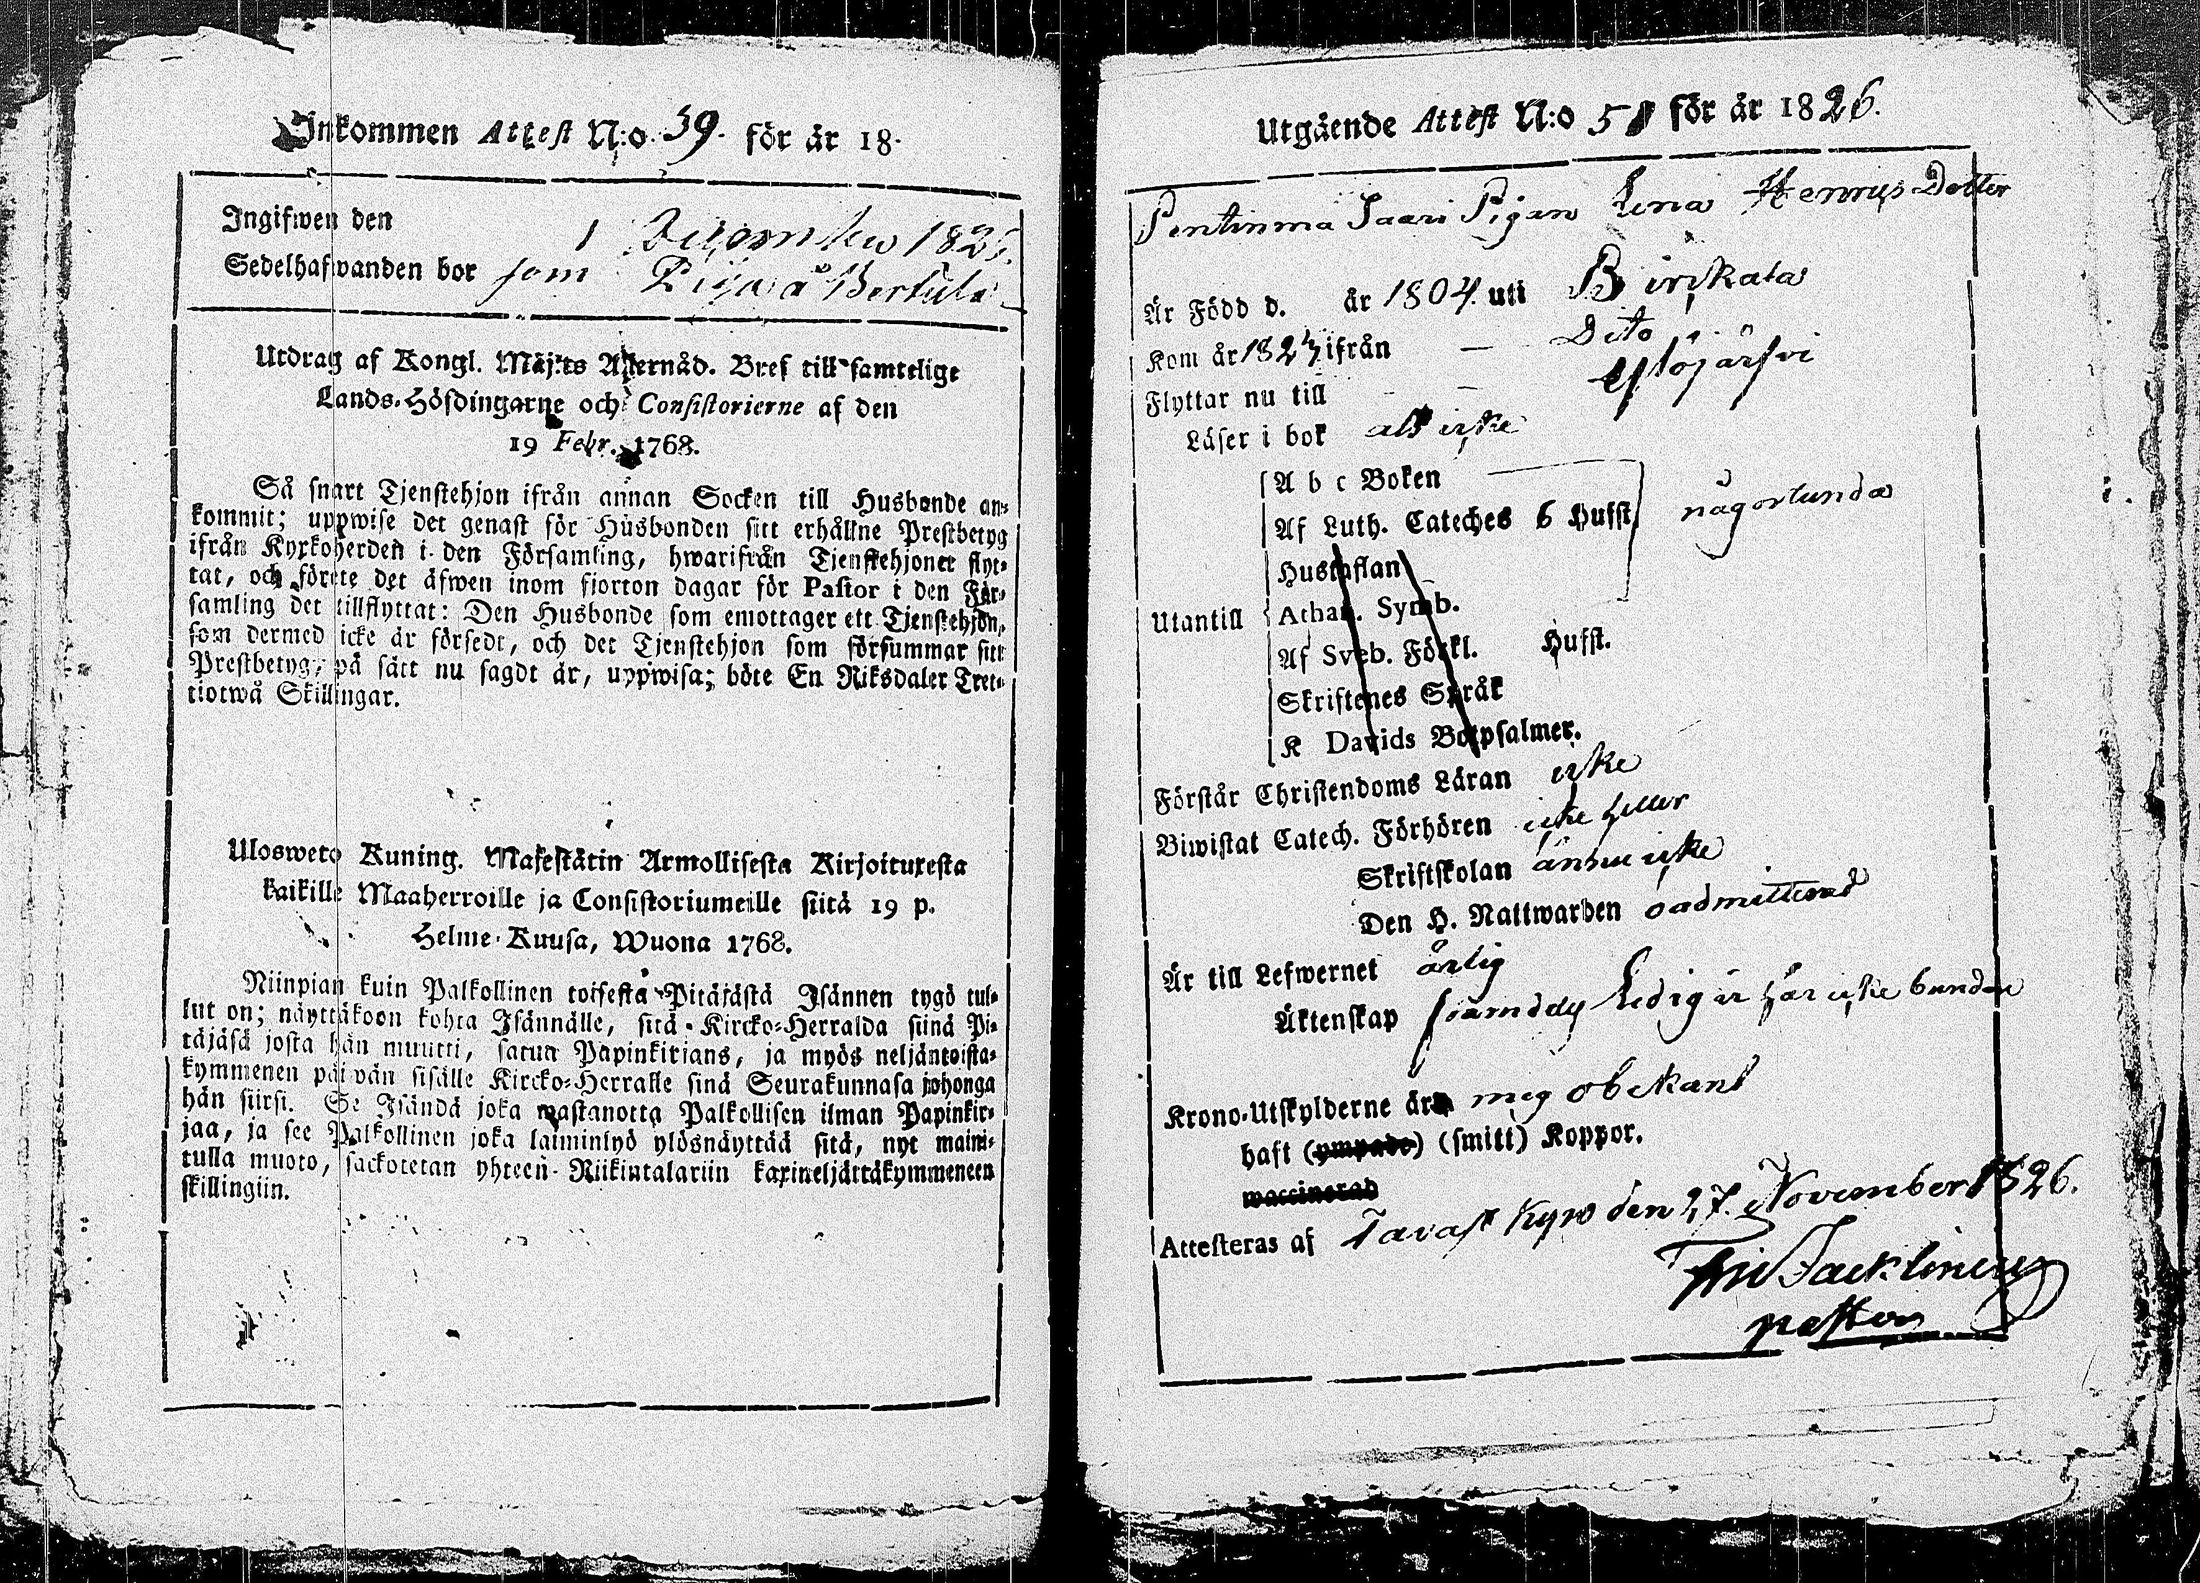 Inkommen Attest N:o 39. för år 18.
Ingifwen den 1 December 1826.
Sedelhafwanden bor som Piga å Bertula
Utdrag af Kongl. Maj:ts Allernåd. Bref till samtelige
Lands-Höfdingarne och Consistorierne af den
19 Febr. 1768.
Så snart Tjenstehjon ifrån annan Socken till Husbonde an-
kommit; uppwise det genast för Husbonden sitt erhållne Prestbetyg
ifrån Kyrkoherden i den Församling, hwarifrån Tjenstehjonet flyt-
tat, och förete det äfwen inom fjorton dagar för Pastor i den För-
samling det tillflyttat: Den Husbonde som emottager ett Tjenstehjon,
som dermed icke är försedt, och det Tjenstehjon som försummar sitt
Prestbetyg, på sätt nu sagdt är, uppwisa; böte En Riksdaler Tret-
tiotwå Skillingar.
Ulosweto Kuning. Majestätin Armollisesta Kirjoituxesta
kaikille Maaherroille ja Consistoriumeille siitä 19 p.
Helme-Kuusa, Wuona 1768.
Niinpian kuin Palkollinen toisesta Pitäjästä Isännen tygö tul-
lut on; näyttäkoon kohta Isännälle, sitä Kircko-Herralda siinä Pi-
täjäsä josta hän muutti, saatua Papinkirjans, ja myös neljäntoista-
kymmenen päiwän sisälle Kircko-Herralle sinä Seurakunnasa johonga
hän siirsi. Se Isändä joka wastanotta Palkollisen ilman Papinkir-
jaa, ja see Palkollinen joka laiminlyö ylösnäyttää sitä, nyt maini-
tulla muoto, sackotetan yhteen Riikintalariin kaxineljättäkymmeneen
skillingiin.
Utgående Attest N:o 58 för år 1826.
Pentinma Saari Pigan Lena Henrics Dotter
Är Född d. år 1804. uti Birkala
Kom år 1823 ifrån — Dito
Flyttar nu till — Ylöjärfvi
Läser i bok alt icke
A b c Boken
Af Luth. Cateches 6 Hufst. någorlunda
Hustaflan
Utantill Athan. Symb.
Af Sveb. Förkl. Hufst.
Skriftenes Språk
K Davids Botpsalmer.
Förstår Christendoms Läran icke
Biwistat Catech. Förhören icke heller
Skriftskolan ännu icke
Den H. Nattwarden oadmitterad
Är till Lefwernet ärlig
Äktenskap framdeles Ledig är här icke bunden
Krono-Utskylderne äro mig obekant
haft (ympade) (smitt) Koppor.
waccinerad
Attesteras af Tavast Kyro den 27. November 1826.